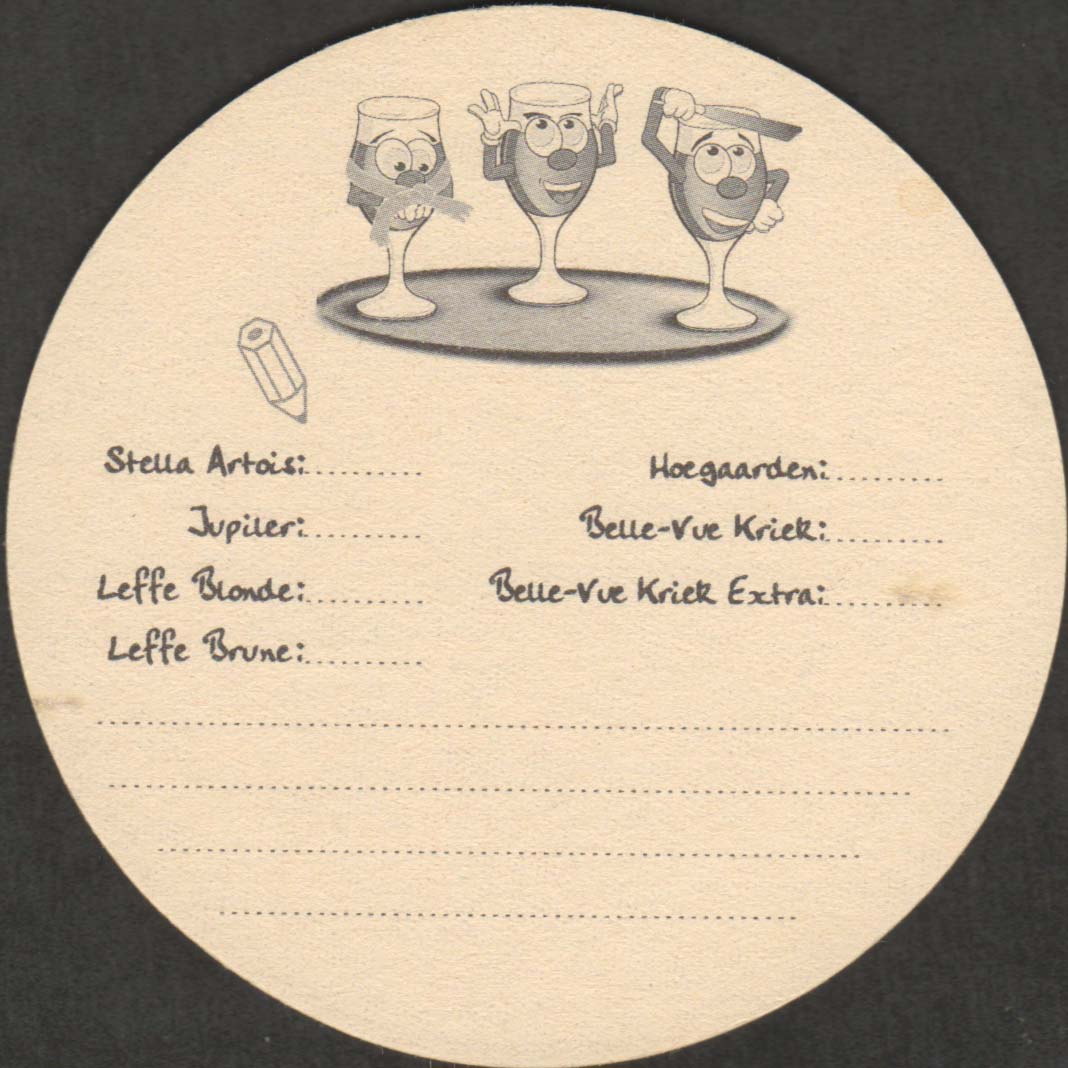 Stella Artois:..........
Jupiler:..........
Leffe Blonde:..........
Leffe Brune:..........
Hoegaarden:..........
Belle-Vue Kriek:..........
Belle-Vue Kriek Extra:..........